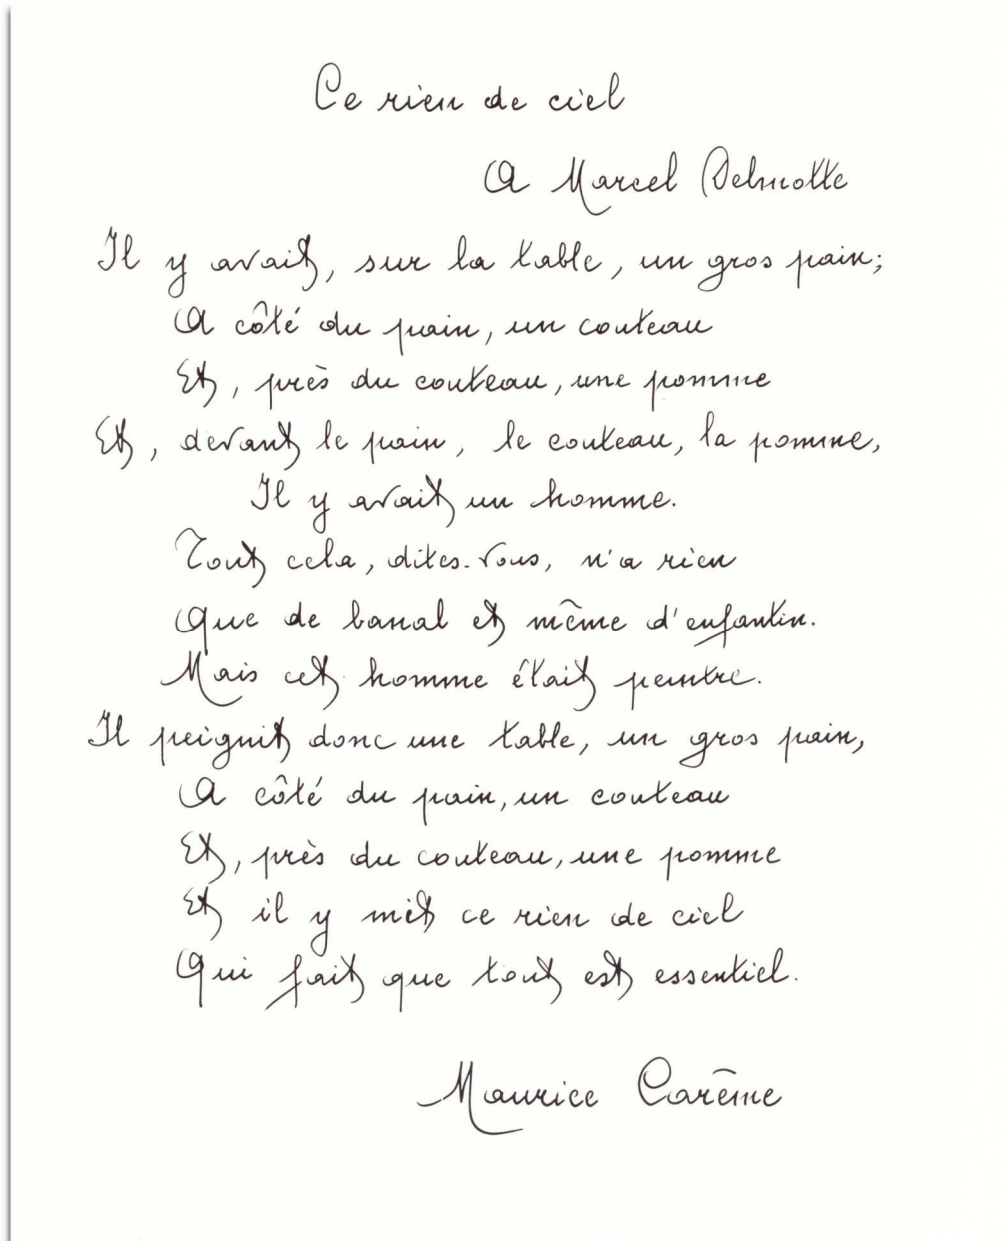 Ce rien de ciel
A Marcel Delmotte
Il y avait, sur la table, un gros pain;
A côté du pain, un couteau
Et, près du couteau, une pomme
Et, devant le pain, le couteau, la pomme,
Il y avait un homme.
Tout cela, dites-vous, n'a rien
Que de banal et même d'enfantin.
Mais cet homme était peintre.
Il peignit donc une table, un gros pain,
A côté du pain, un couteau
Et, près du couteau, une pomme
Et il y mit ce rien de ciel
Qui fait que tout est essentiel.
Maurice Carême